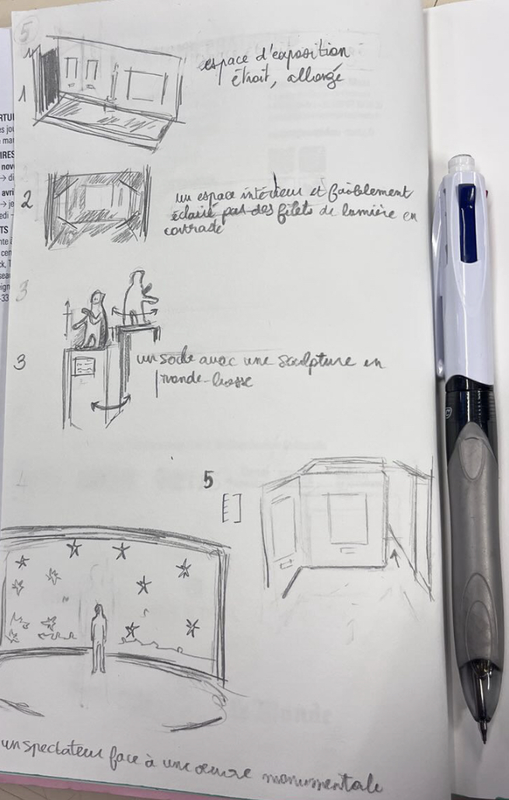 5
1
espace d'exposition
étroit, allongé
1
2
un espace intérieur et faiblement
éclairé par des filets de lumière en
contrade
3
3
un socle avec une sculpture en
ronde-bosse
5
[ ]
un spectateur face à une œuvre monumentale